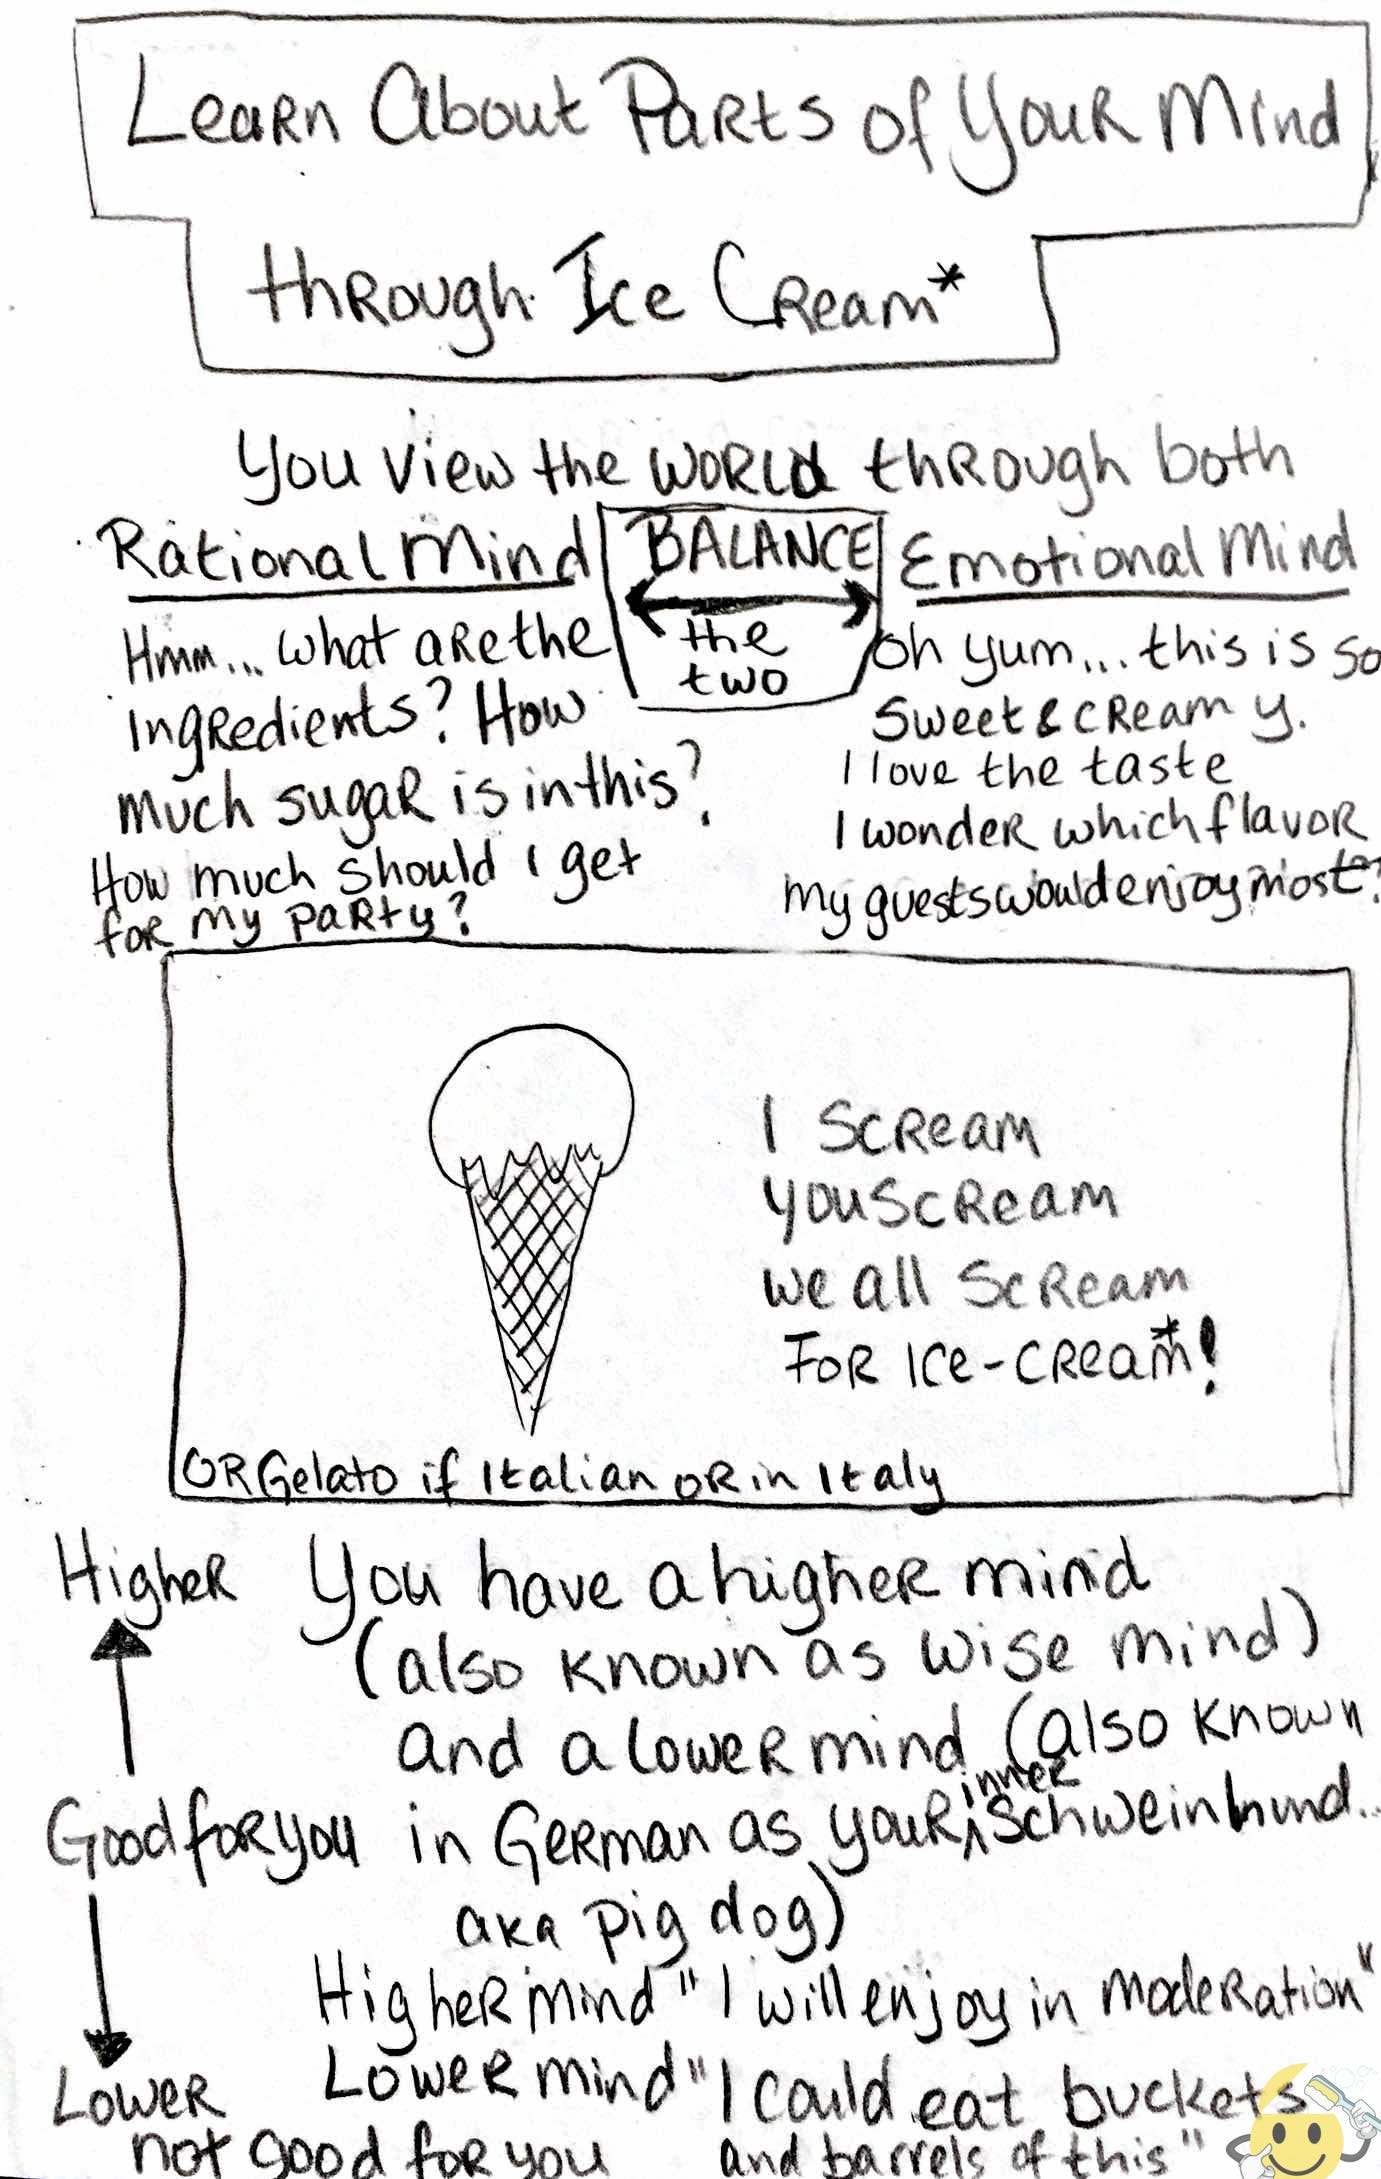 Learn About Parts of Your Mind
through Ice Cream*
You view the world through both
Rational Mind
BALANCE
the
two
Emotional Mind
Hmm... what are the
ingredients? How
much sugar is in this?
How much should I get
for my party?
Oh yum... this is so
sweet & creamy.
I love the taste
I wonder which flavor
my guests would enjoy most?
I SCREAM
YOU SCREAM
we all SCREAM
FOR ICE-CREAM*!
OR Gelato if Italian OR in Italy
Higher
Good for you
Lower
not good for you
You have a higher mind
(also known as wise mind)
and a lower mind (also known
in German as your inner Schweinhund...
aka pig dog)
Higher mind "I will enjoy in moderation"
Lower mind "I could eat buckets
and barrels of this"